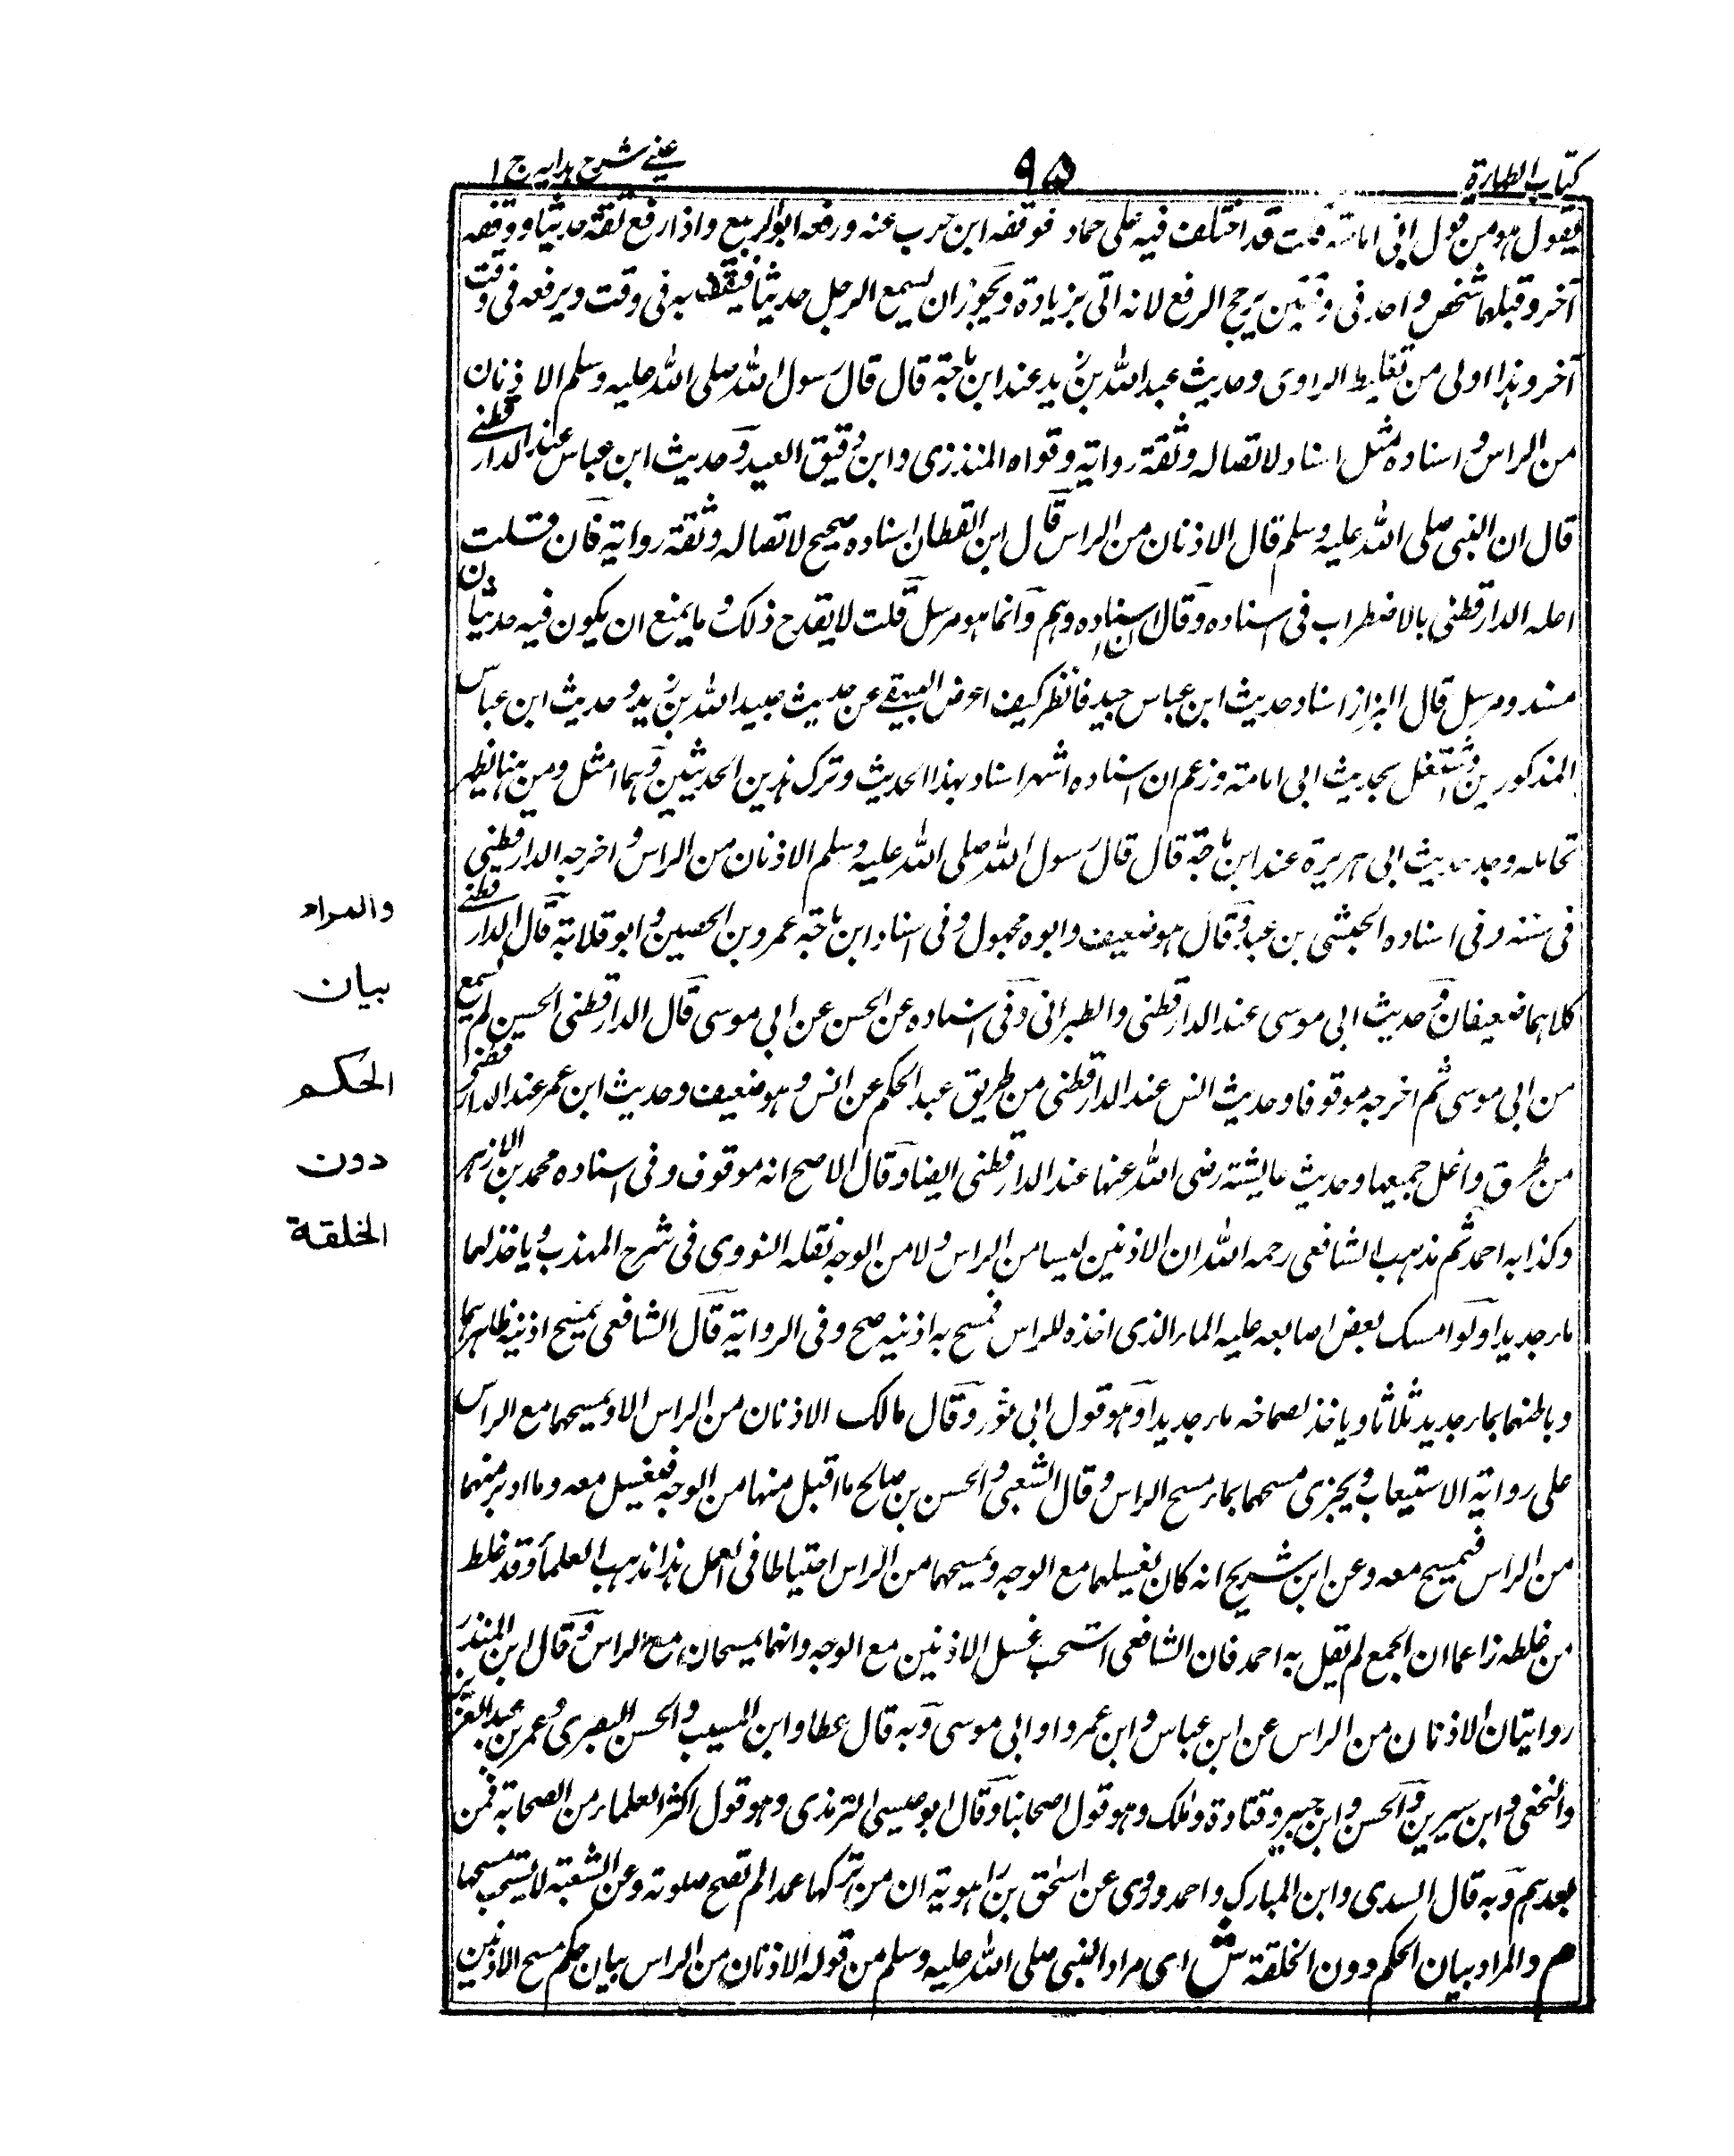 كتاب الطهارة
٩۵
عينے شرح ہدايہ ج ١
فيقول هو من قول ابی امامة قلت قد اختلف فيه علی حماد فوقفه ابن حرب عنه ورفعه ابو الربيع واذا رفع ثقة حديثا ووقفه
آخر وقبلهما شخص واحد فی وقتين يرجح الرفع لانه اتی بزيادة ويجوز ان يسمع الرجل حديثا فيقف به فی وقت ويرفعه فی وقت
آخر وہذا اولی من تغليط الراوی وحديث عبد الله بن زيد عند ابن ماجة قال قال رسول الله صلی الله عليه وسلم الاذنان
من الراس واسناده مثل اسناد لاتصاله وثقة رواية وقواه المنذری وابن دقيق العيد وحديث ابن عباس عند الدارقطنے
قال ان النبی صلی الله عليه وسلم قال الاذنان من الراس قال ابن القطان اسناده صحيح لاتصاله وثقة رواية فان قلت
اعله الدارقطنی بالاضطراب فی اسناده وقال ان اسناده وہم وانما هو مرسل قلت لا يقدح ذلك وما يمنع ان يكون فيه حديثان
مسند ومرسل قال البزاز اسناد حديث ابن عباس جيد فانظر كيف اعرض البيهقے عن حديث عبيد الله بن زيد وحديث ابن عباس
المذكورين واشتغل بحديث ابی امامة وزعم ان اسناده اشهر اسناد بهذا الحديث وترك ہذين الحديثين وہما امثل ومن ہنا يظهر
تحامله وجد حديث ابی ہريرة عند ابن ماجة قال قال رسول الله صلی الله عليه وسلم الاذنان من الراس واخرجه الدارقطنی
فی سننه وفی اسناده الحبشی بن عباد وقال هو ضعيف وابوه مجهول وفی اسناد ابن ماجة عمرو بن الحصين وابو قلابة قال الدارقطنے
كلاہما ضعيفان وحديث ابی موسی عند الدارقطنی والطبرانی وفی اسناده عن الحسن عن ابی موسی قال الدارقطنی الحسين لم يسمع
من ابی موسی ثم اخرجه موقوفا وحديث انس عند الدارقطنی من طريق عبد الحكم عن انس وهو ضعيف وحديث ابن عمر عند الدارقطنی
من طرق واعل جميعها وحديث عايشة رضی الله عنها عند الدارقطنی ايضا وقال الاصح انه موقوف وفی اسناده محمد بن الازہر
وكذا به احمد ثم مذہب الشافعی رحمه الله ان الاذنين ليسا من الراس ولا من الوجه نقله النووی فی شرح المهذب وياخذ لهما
ماء جديدا ولو امسك بعض اصابعه عليه الماء الذی اخذه للراس فمسح به اذنيه صح وفی الرواية قال الشافعی يمسح اذنيه ظاہرہما
وباطنهما بماء جديد ثلاثا وياخذ لصماخه ماء جديدا وهو قول ابی ثور وقال مالك الاذنان من الراس الا ويمسحهما مع الراس
علی رواية الاستيعاب ويجزی مسحهما بماء مسح الراس وقال الشعبی والحسن بن صالح ما اقبل منهما من الوجه فيغسل معه وما ادبر منهما
من الراس فيمسح معه وعن ابن شريح انه كان يغسلهما مع الوجه ويمسحهما من الراس احتياطا فی العمل ہذا مذہب العلماء وقد غلط
من غلطه زاعما ان الجمع لم يقل به احمد فان الشافعی استحب غسل الاذنين مع الوجه وانهما يمسحان مع الراس وقال ابن المنذر
روايتان الاذنان من الراس عن ابن عباس وابن عمر واو ابی موسی وبه قال عطاء وابن المسيب والحسن البصری وعمر بن عبد العزيز
والنخعی وابن سيرين والحسن وابن جبير وقتادة ومالك وهو قول اصحابنا وقال ابو عيسی الترمذی وهو قول اكثر العلماء من الصحابة فمن
بعدہم وبه قال السدی وابن المبارك واحمد وروی عن اسحق بن راہوية ان من تركها عمدا لم تصح صلوته وعن الشعبة لا يستحب مسحها
م والمراد بيان الحكم دون الخلقة ش ای مراد النبی صلی الله عليه وسلم من قوله الاذنان من الراس بيان حكم مسح الاذنين
والمراد
بيان
الحكم
دون
الخلقة